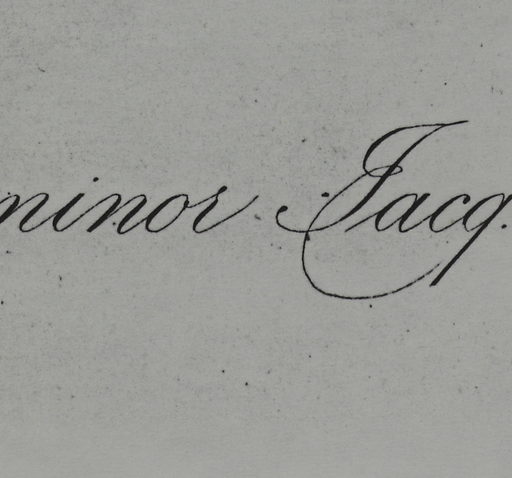 minor Jacq.